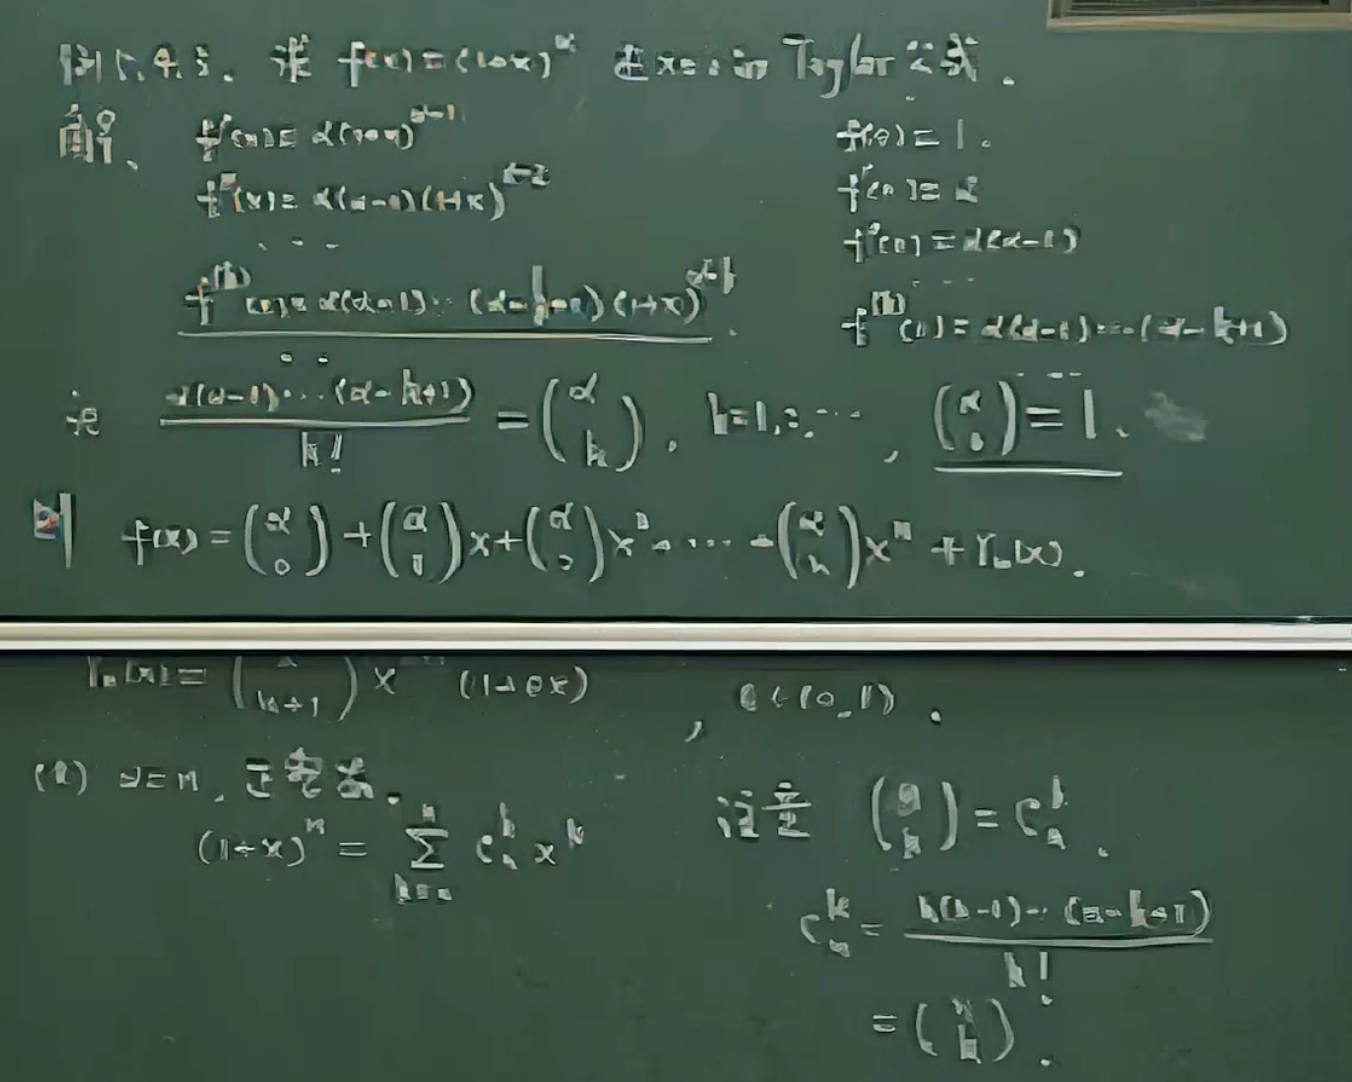 例5.4.3. 求 f(x)=(1+x)^α 在 x=0 的 Taylor 公式.
解. f'(x)=α(1+x)^{α-1}
f''(x)=α(α-1)(1+x)^{α-2}
...
f^{(k)}(x)=α(α-1)...(α-k+1)(1+x)^{α-k}.
...
f(0)=1.
f'(0)=α
f''(0)=α(α-1)
...
f^{(k)}(0)=α(α-1)...(α-k+1)
...
记 α(α-1)...(α-k+1)/k! = (α k), k=1,2,..., (α 0)=1.
则 f(x)=(α 0)+(α 1)x+(α 2)x^2+...+(α n)x^n+r_n(x).
r_n(x)=(α n+1)x (1+θx) , θ∈(0,1).
α=n, 正整数.
(1+x)^n = ∑_{k=0}^{n} C_n^k x^k
注意 (n k)=C_n^k.
C_n^k = n(n-1)...(n-k+1)/k!
=(n k).